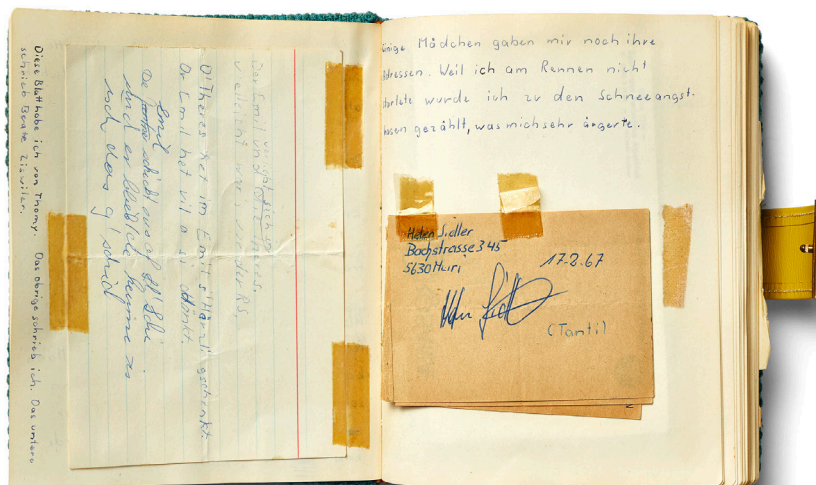 Diese Blatt habe ich von Thomy. Das obrige schrieb ich. Das untere
schrieb Beate Ziswiler.
Der Emil und Theres.
Vielleicht wars vor der RS.
D'Theres het im Emil s'Härzli gschenkt
Dr Emil het vil a si dänkt.
Emil
De schickt
und er
isch das g'schid
inige Mädchen gaben mir noch ihre
dressen. Weil ich am Rennen nicht
tartete wurde ich zu den Schneeangst-
hasen gezählt, was mich sehr ärgerte.
Helen Sidler
Bachstrasse 345
5630 Muri
17.2.67
Helen Sidler
(Tanti)